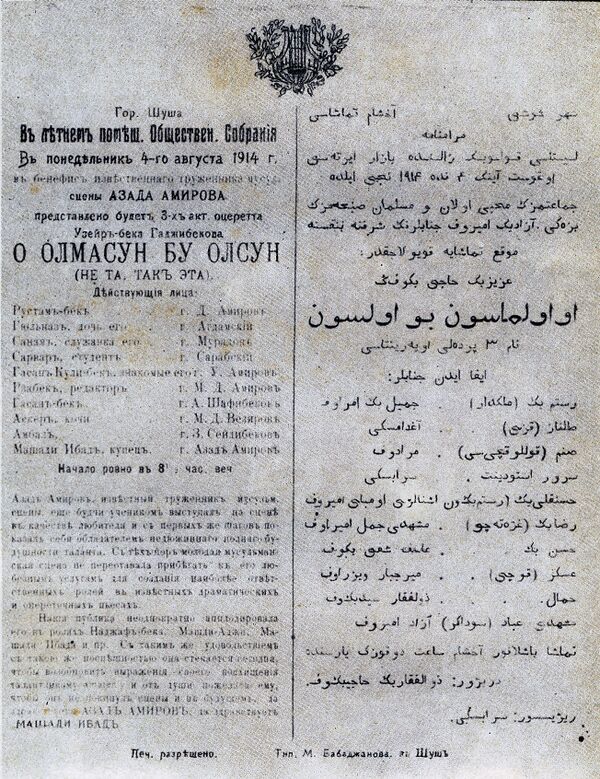 Гор. Шуша
Въ лѣтнемъ помѣщ. Обществен. Собранія
Въ понедѣльникъ 4-го августа 1914 г.
въ бенефисъ извѣстнаго труженника мусул.
сцены АЗАДА АМИРОВА
представлено будетъ 3-хъ акт. оперетта
Узейръ-бека Гаджибекова
О ОЛМАСУН БУ ОЛСУН
(НЕ ТА, ТАКЪ ЭТА).
Дѣйствующія лица:
Рустамъ-бекъ г. Д. Амировъ
Гюльназъ, дочь его г. Агдамскій
Санамъ, служанка его г. Мурадовъ
Сарваръ, студентъ г. Сарабскій
Гасанъ-Кули-бекъ, знакомые его г. У. Амировъ
Рзабекъ, редакторъ г. М. Д. Амировъ
Гасанъ-бекъ г. А. Шафибековъ
Аскеръ, кочи г. М. Д. Везировъ
Амбалъ, г. З. Сейдибековъ
Машади Ибадъ, купецъ. г. Азадъ Амировъ
Начало ровно въ 8 час. веч
Азадъ Амировъ, извѣстный труженникъ мусульм.
сцены, еще будучи ученикомъ выступалъ на сценѣ
въ качествѣ любителя и съ первыхъ же шаговъ по-
казалъ себя обладателемъ недюжиннаго полнаго бу-
дущности таланта. Съ тѣхъ поръ молодая мусульман-
ская сцена не переставала прибѣгать къ его лю-
безнымъ услугамъ для созданія наиболѣе отвѣт-
ственныхъ ролей въ извѣстныхъ драматическихъ
и опереточныхъ пьесахъ.
Наша публика неоднократно апплодировала
его въ роляхъ Наджафъ-бека, Машади-Азиж, Ма-
шади Ибада и пр. Съ такимъ же удовольствіемъ
съ такою же поспѣшностью она стекается сегодня,
чтобы возобновить выраженія своего восхищенія
талантливому и отъ души пожелать ему,
чтобы онъ не покинулъ сцены и въ будущемъ, да
АЗАДЪ АМИРОВЪ, да здравствуетъ
МАШАДИ ИБАДЪ
شهر شوشی آخشام تماشاسی
مرامنامه
اوغوست آینک ۴ نده ۱۹۱۴ نجی ایلده
جماعتمزک محبی اولان و مسلمان صحنه‌مزک
موقع تماشایه قویولاجقدر:
عزیر بک حاجی بکوفک
او اولماسون بو اولسون
نام ۳ پرده‌لی اوپه‌ریتتاسی
ایفا ایدن جنابلر:
رستم بک (ملکدار) . جمیل بک امیراوف
طلناز (قزیسی) . آغدامسکی
صنم (قوللوقچی‌سی) . مرادوف
سرور استودینت . سرابسکی
رضا بک (غزه‌ته‌چی) . مشهدی جمل امیراوف
حسن بک .
عسکر (قوچی) . میرجبار ویزراوف
حمال. . ذوالفقار سیدبکوف
مشهدی عباد (سوداگر) آزاد امیروف
تماشا باشلانور آخشام ساعت دوقوزک یارسنده
دریژور: ذوالفقاربک حاجیبکوف.
ریژیسسور: سرابسکی.
Печ. разрѣшено. Тип. М. Бабаджанова. въ Шушѣ